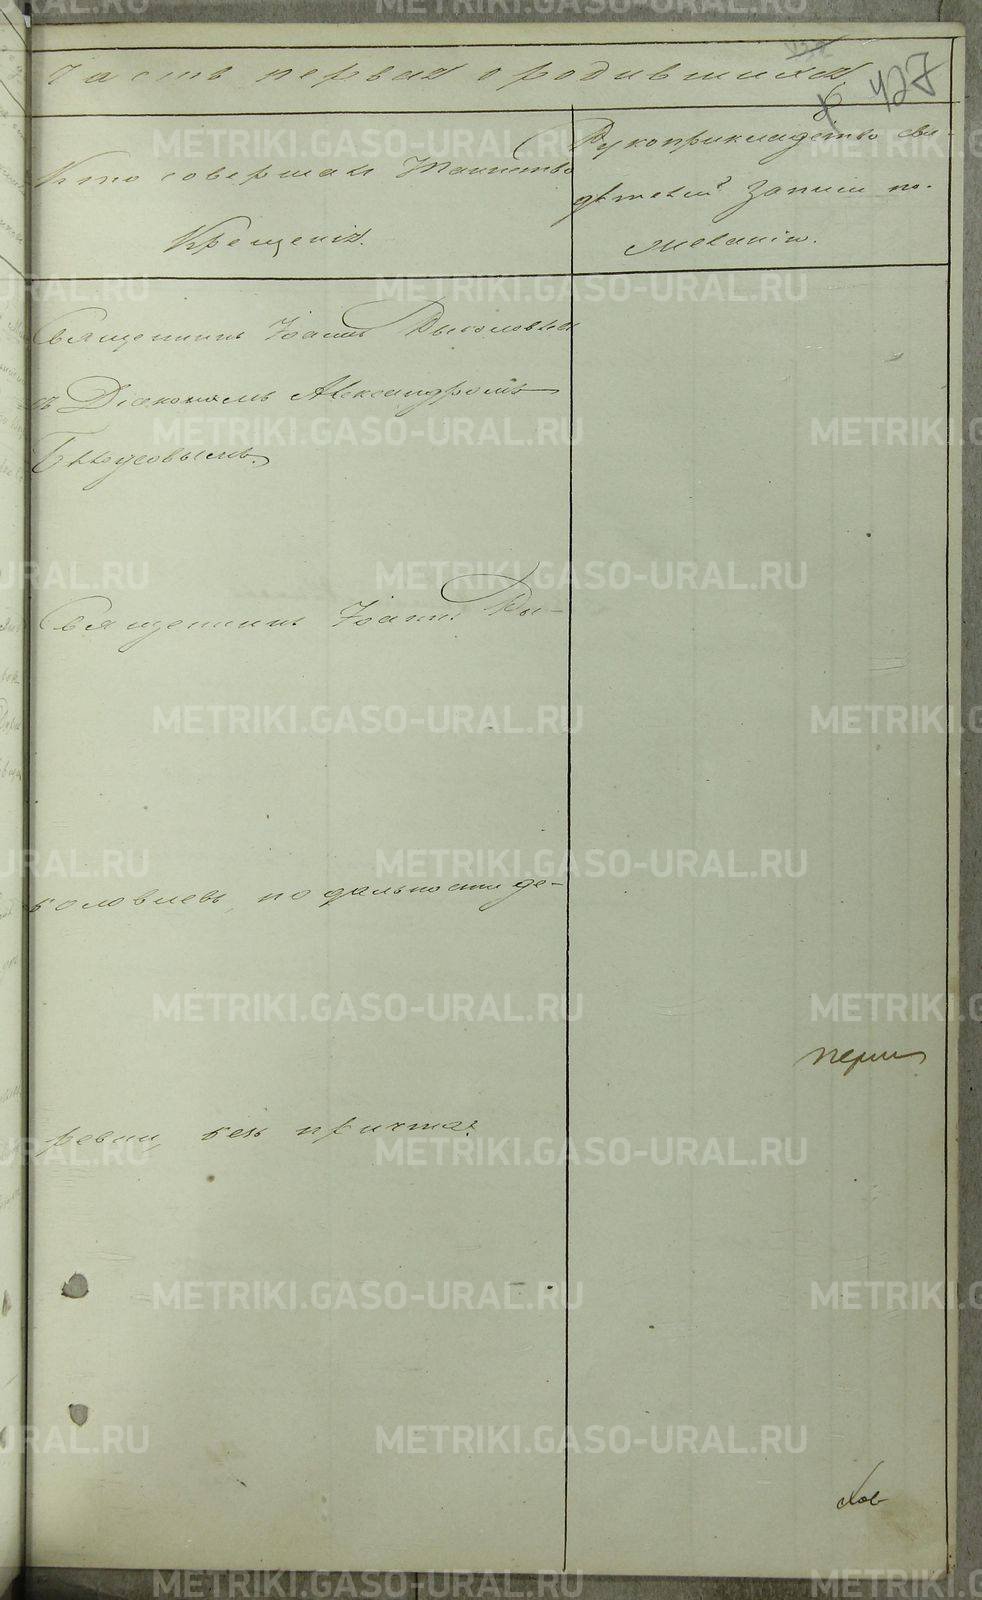 Часть первая о родившихся
427
Кто совершал Таинство
Крещенія.
Рукоприкладство сви-
дѣтелей записи по
желанію.
Священникъ Іоаннъ
съ Діакономъ Александромъ
Бѣлоусовымъ.
Священникъ Іоаннъ Ды-
коловлевъ, по дальности де-
ревни, безъ причта.
METRIKI.GASO-URAL.RU